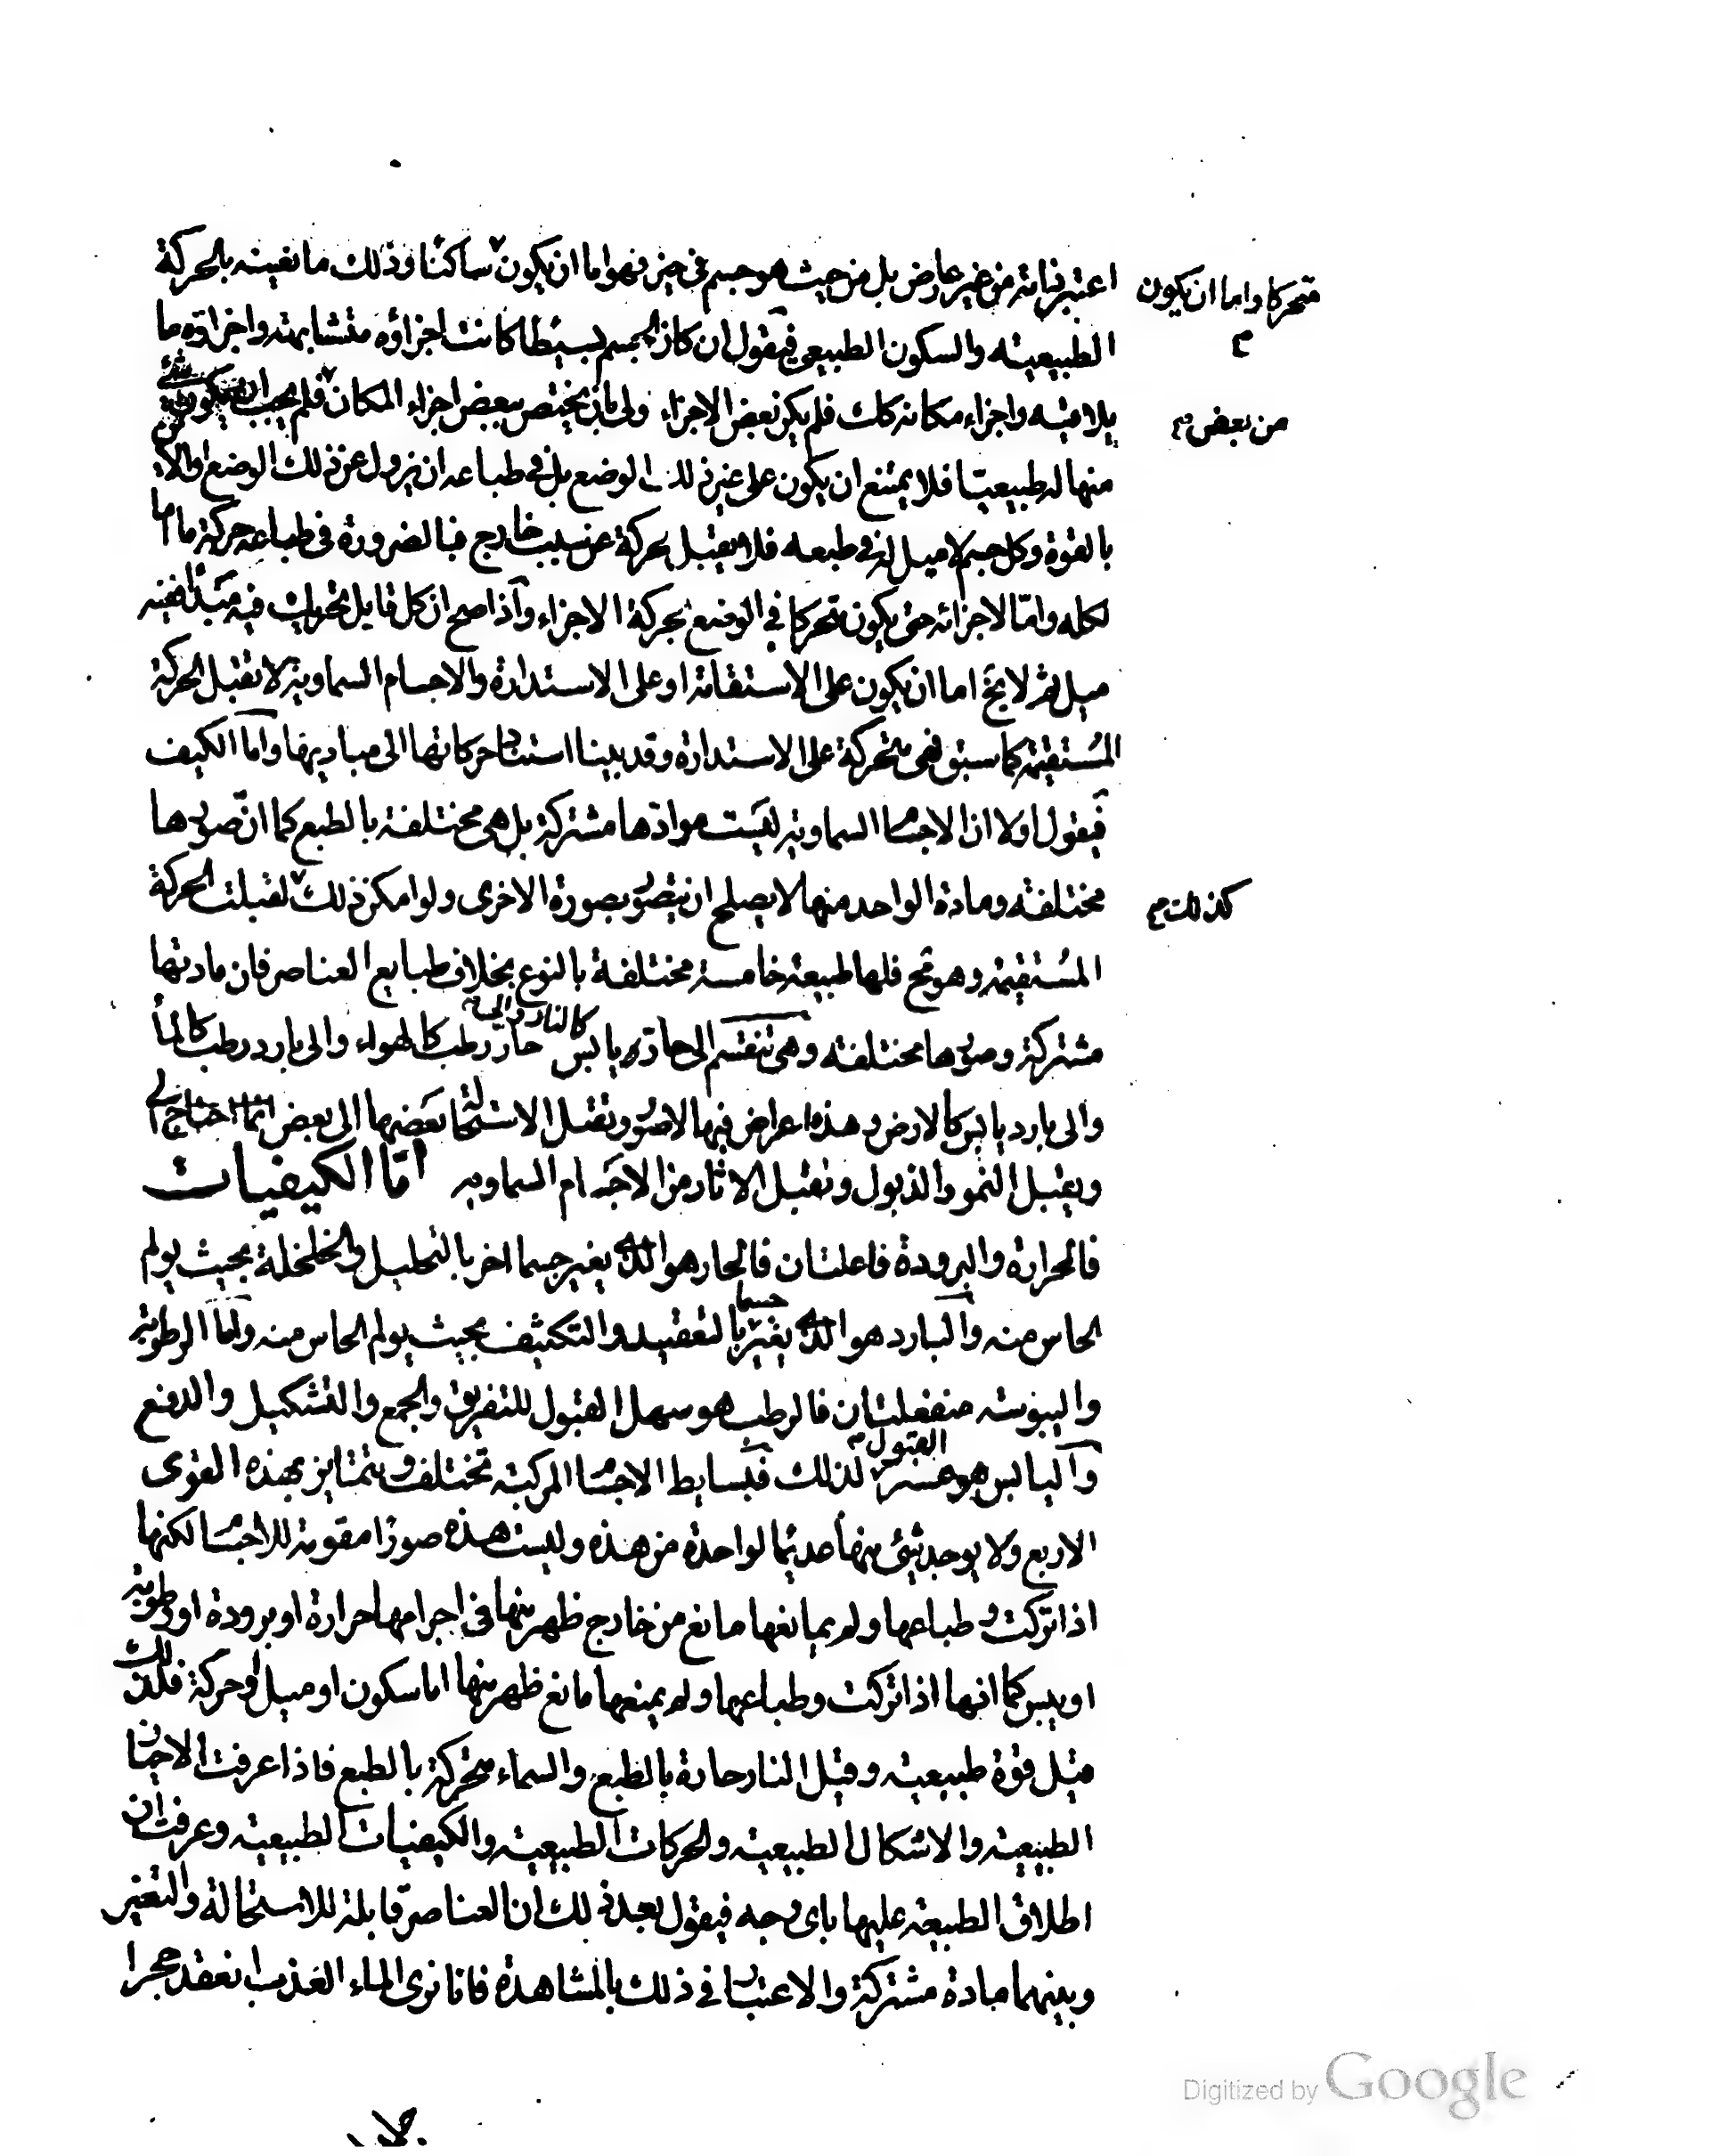 اعتبر ذاته من غير عارض بل من حيث هو جسم فى حيز فهو اما ان يكون ساكنا وذلك ما نعينه بالحركة
متحركا واما ان يكون
الطبيعية والسكون الطبيعى فيقول ان كان الجسم بسيطا كانت اجزاؤه متشابهة واجزاؤه ما
يلاقيه واجزاء مكانه كذلك فلم يكن بعض الاجزاء اولى بان يختص ببعض اجزاء المكان فلم يجب ان يكون شئ
من بعض
منها له طبيعيا فلا يمتنع ان يكون على غير ذلك الوضع بل فى طباعه ان يزول عن ذلك الوضع
بالقوة وكل جسم لا ميل له فى طبعه فلا يقبل حركة عن سبب خارج فبالضرورة فى طباعه حركة ما اما
لكله واما لاجزائه حتى يكون متحركا فى الوضع بحركة الاجزاء واذا صح ان كل قابل تحريك فيه مبدأ
ميل ثم لا يخ اما ان يكون على الاستقامة او على الاستدارة والاجسام السماوية لا تقبل الحركة
المستقيمة كما سبق فهى متحركة على الاستدارة وقد بينا استناد حركاتها الى مباديها واما الكيف
فيقول اولا ان الاجسام السماوية ليست موادها مشتركة بل هى مختلفة بالطبع كما ان صورها
مختلفة ومادة الواحد منها لا يصلح ان يتصور بصورة الاخرى ولو امكن ذلك لقبلت الحركة
كذلك
المستقيمة وهو مح فلها طبيعة خامسة مختلفة بالنوع بخلاف طبايع العناصر فان مادتها
مشتركة وصورها مختلفة وهى تنقسم الى حار يابس كالنار والى حار رطب كالهواء والى بارد رطب كالماء
والى بارد يابس كالارض وهذه اعراض فيها لا صور وتقبل الاستحالة بعضها الى بعض
ويقبل النمو والذبول وتقبل الاثار من الاجسام السماوية اما الكيفيات
فالحرارة والبرودة فاعلتان فالحار هو الذى يغير جسما اخر بالتحليل والخلخلة بحيث يولم
الحاس منه والبارد هو الذى يغير جسما بالتعقيد والتكثيف بحيث يولم الحاس منه واما الرطوبة
واليبوسة منفعلتان فالرطب هو سهل القبول للتفريق والجمع والتشكيل والدفع
واليابس هو عسر القبول لذلك فبسايط الاجسام المركبة تختلف وتتمايز بهذه القوى
الاربع ولا يوجد شئ منها عديما لواحدة من هذه وليست هذه صورا مقومة للاجسام لكنها
اذا تركت وطباعها ولم يمانعها مانع من خارج ظهر منها فى اجرامها حرارة او برودة او رطوبة
او يبس كما انها اذا تركت وطباعها ولم يمنعها مانع ظهر منها اما سكون او ميل او حركة فلذلك
قيل قوة طبيعية وقيل النار حارة بالطبع والسماء متحركة بالطبع فاذا عرفت الاحياز
الطبيعية والاشكال الطبيعية والحركات الطبيعية والكيفيات الطبيعية وعرفت ان
اطلاق الطبيعة عليها باى وجه فيقول بعد ذلك ان العناصر قابلة للاستحالة والتغير
وبينهما مادة مشتركة والاعتبار فى ذلك بالمشاهدة فانا نرى الماء العذب انعقد حجرا
Digitized by Google